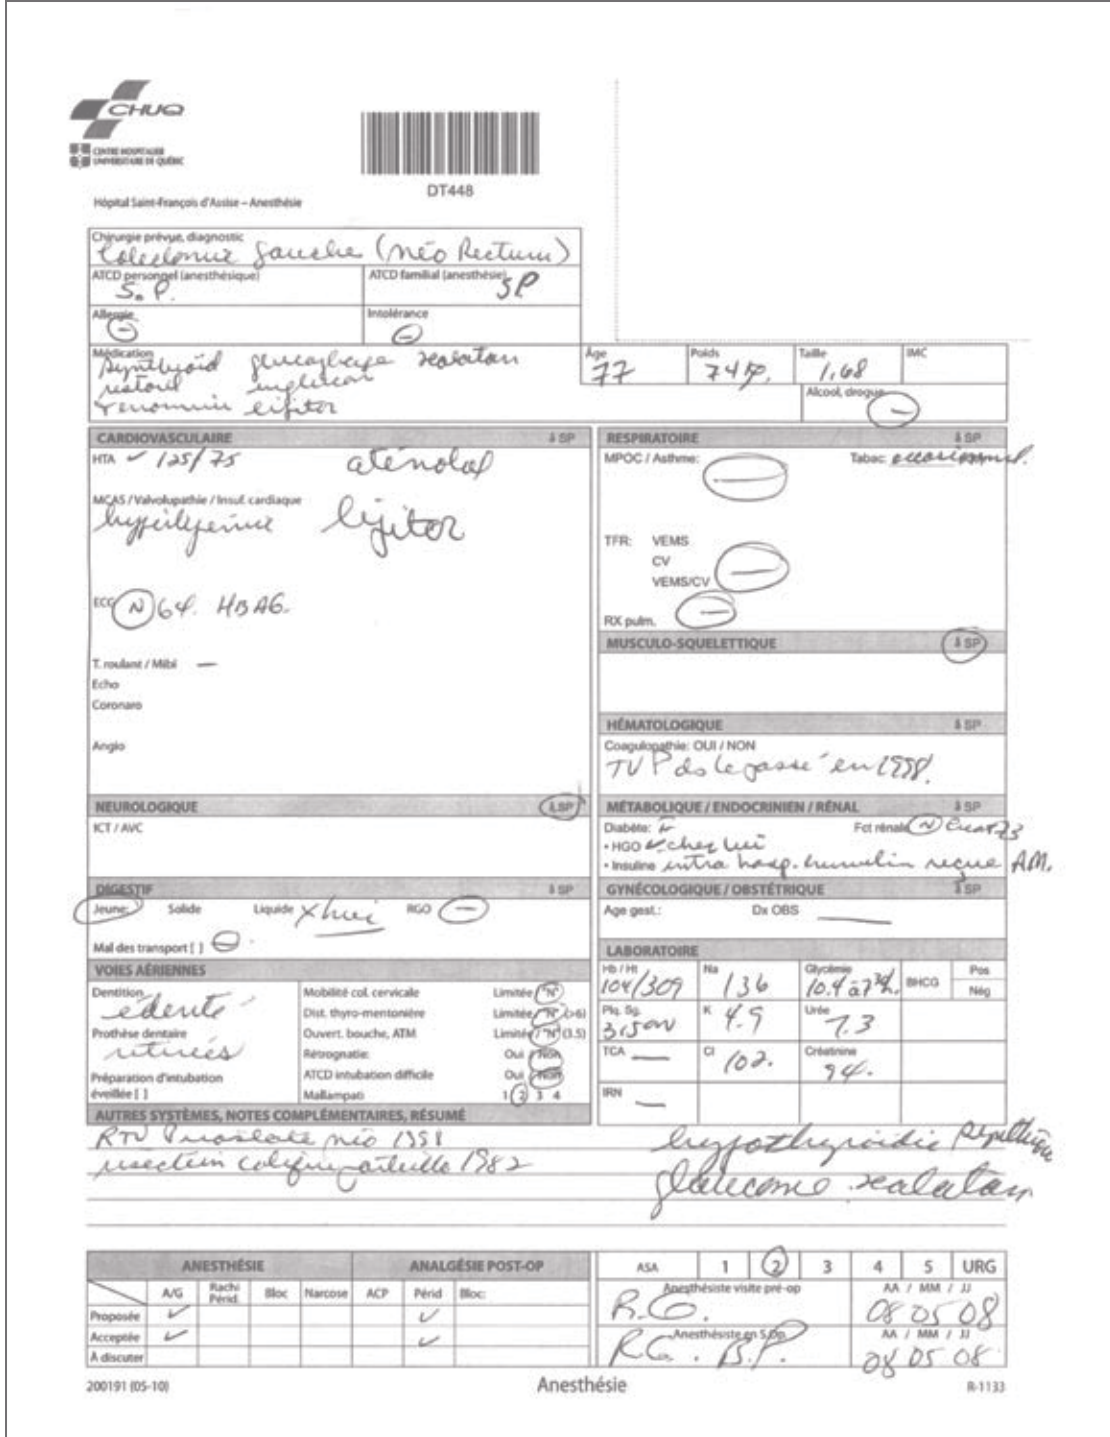 CHUQ
CENTRE HOSPITALIER
UNIVERSITAIRE DE QUÉBEC
DT448
Hôpital Saint-François d'Assise – Anesthésie
Chirurgie prévue, diagnostic
gauche (néo Rectum)
ATCD personnel (anesthésique) ATCD familial (anesthésie)
S.P. SP
Allergie Intolérance
– –
Médication Âge Poids Taille IMC
Synthroid glucophage xalatan 77 74 kg. 1,68
restoril Alcool, drogue –
tenormin lipitor
CARDIOVASCULAIRE à SP
HTA ✓ 125/75 aténolol
MCAS / Valvulopathie / Insuf. cardiaque
lipitor
ECG N 64. HBAG.
T. roulant / Mibi —
Echo
Coronaro
Angio
NEUROLOGIQUE à SP
ICT / AVC
DIGESTIF à SP
Jeune: Solide Liquide RGO —
Mal des transport [ ] –
VOIES AÉRIENNES
Dentition
édenté
Prothèse dentaire
retirées
Préparation d'intubation
éveillée [ ]
Mobilité col. cervicale Limitée / "N"
Dist. thyro-mentonière Limitée / "N" (>6)
Ouvert. bouche, ATM Limitée / "N" (3.5)
Rétrognatie: Oui / Non
ATCD intubation difficile Oui / Non
Mallampati 1 2 3 4
RESPIRATOIRE à SP
MPOC / Asthme: — Tabac: occasionnel.
TFR: VEMS
CV —
VEMS/CV
RX pulm. —
MUSCULO-SQUELETTIQUE à SP
HÉMATOLOGIQUE à SP
Coagulopathie: OUI / NON
TVP ds le passé en 1998.
MÉTABOLIQUE / ENDOCRINIEN / RÉNAL à SP
Diabète: Fct rénale N
• HGO ✓ chez lui
• Insuline intra hosp. humulin reçue AM.
GYNÉCOLOGIQUE / OBSTÉTRIQUE à SP
Age gest.: Dx OBS —
LABORATOIRE
Hb / Ht Na Glycémie BHCG Pos
104/309 136 10.4 à 7 Nég
Plq. Sg. K Urée
4.9 7.3
TCA — Cl Créatinine
102. 94.
IRN —
AUTRES SYSTÈMES, NOTES COMPLÉMENTAIRES, RÉSUMÉ
RTU Prostate néo 1998
résection colique partielle 1982
hypothyroidie
glaucome xalatan
ANESTHÉSIE ANALGÉSIE POST-OP
A/G Rachi Périd. Bloc Narcose ACP Périd Bloc:
Proposée ✓ ✓
Acceptée ✓ ✓
À discuter
ASA 1 2 3 4 5 URG
Anesthésiste visite pré-op AA / MM / JJ
R.G. 08 05 08
Anesthésiste en S.Op. AA / MM / JJ
RG. B.P. 08 05 08
200191 (05-10) Anesthésie R-1133